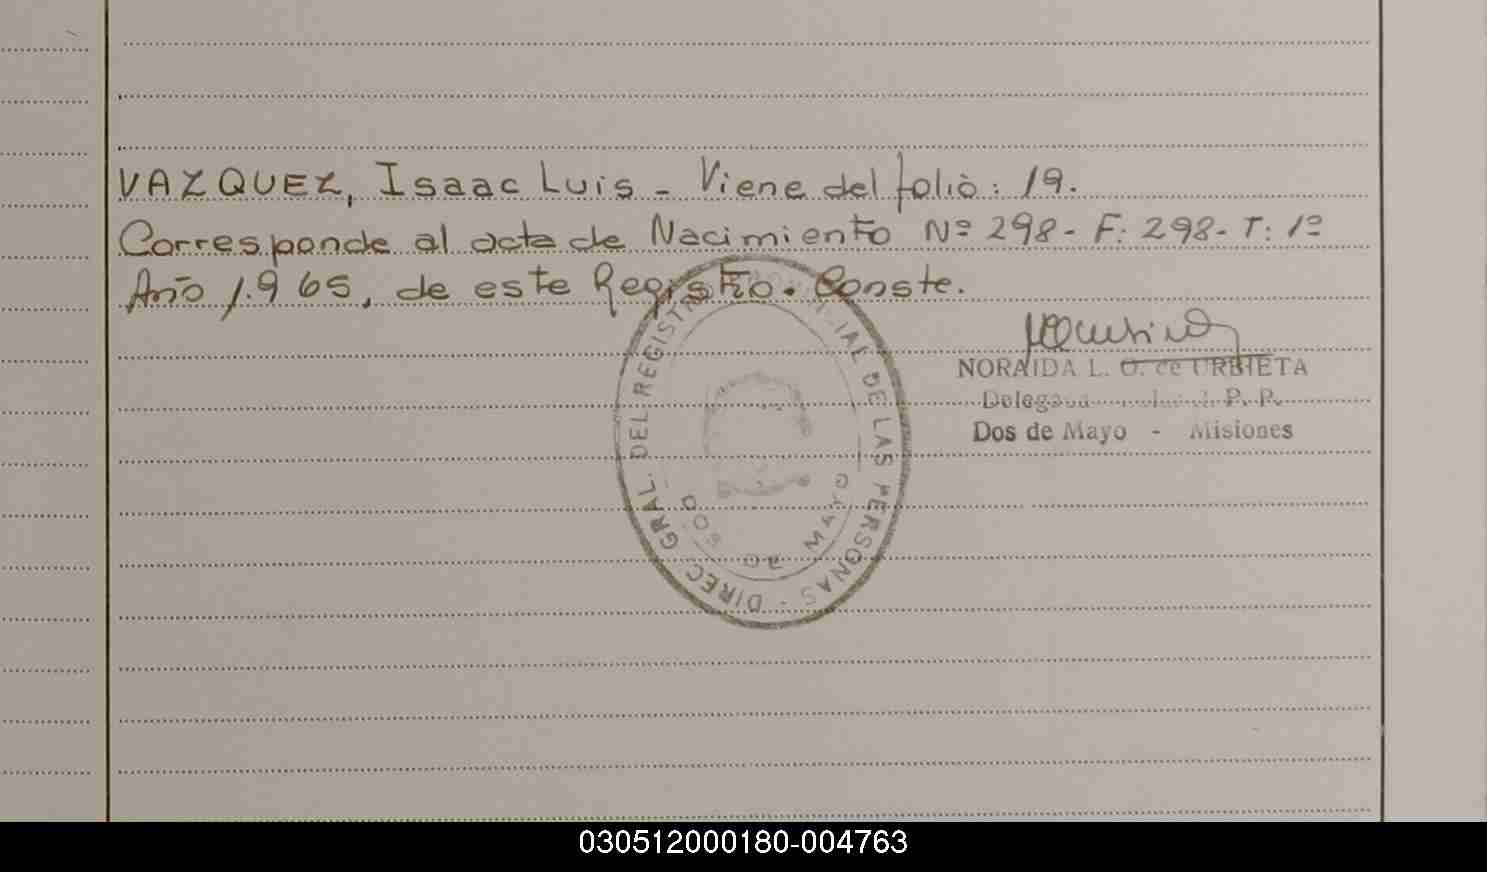 VAZQUEZ, Isaac Luis - Viene del folio: 19.
Corresponde al acta de Nacimiento Nº 298 - F: 298 - T: 1º
Año 1.965, de este Registro. Conste.
NORAIDA L. O. de URBIETA
P. P.
Dos de Mayo - Misiones
DIREC. GRAL. DEL REGISTRO DE LAS PERSONAS -
DOS DE MAYO
030512000180-004763